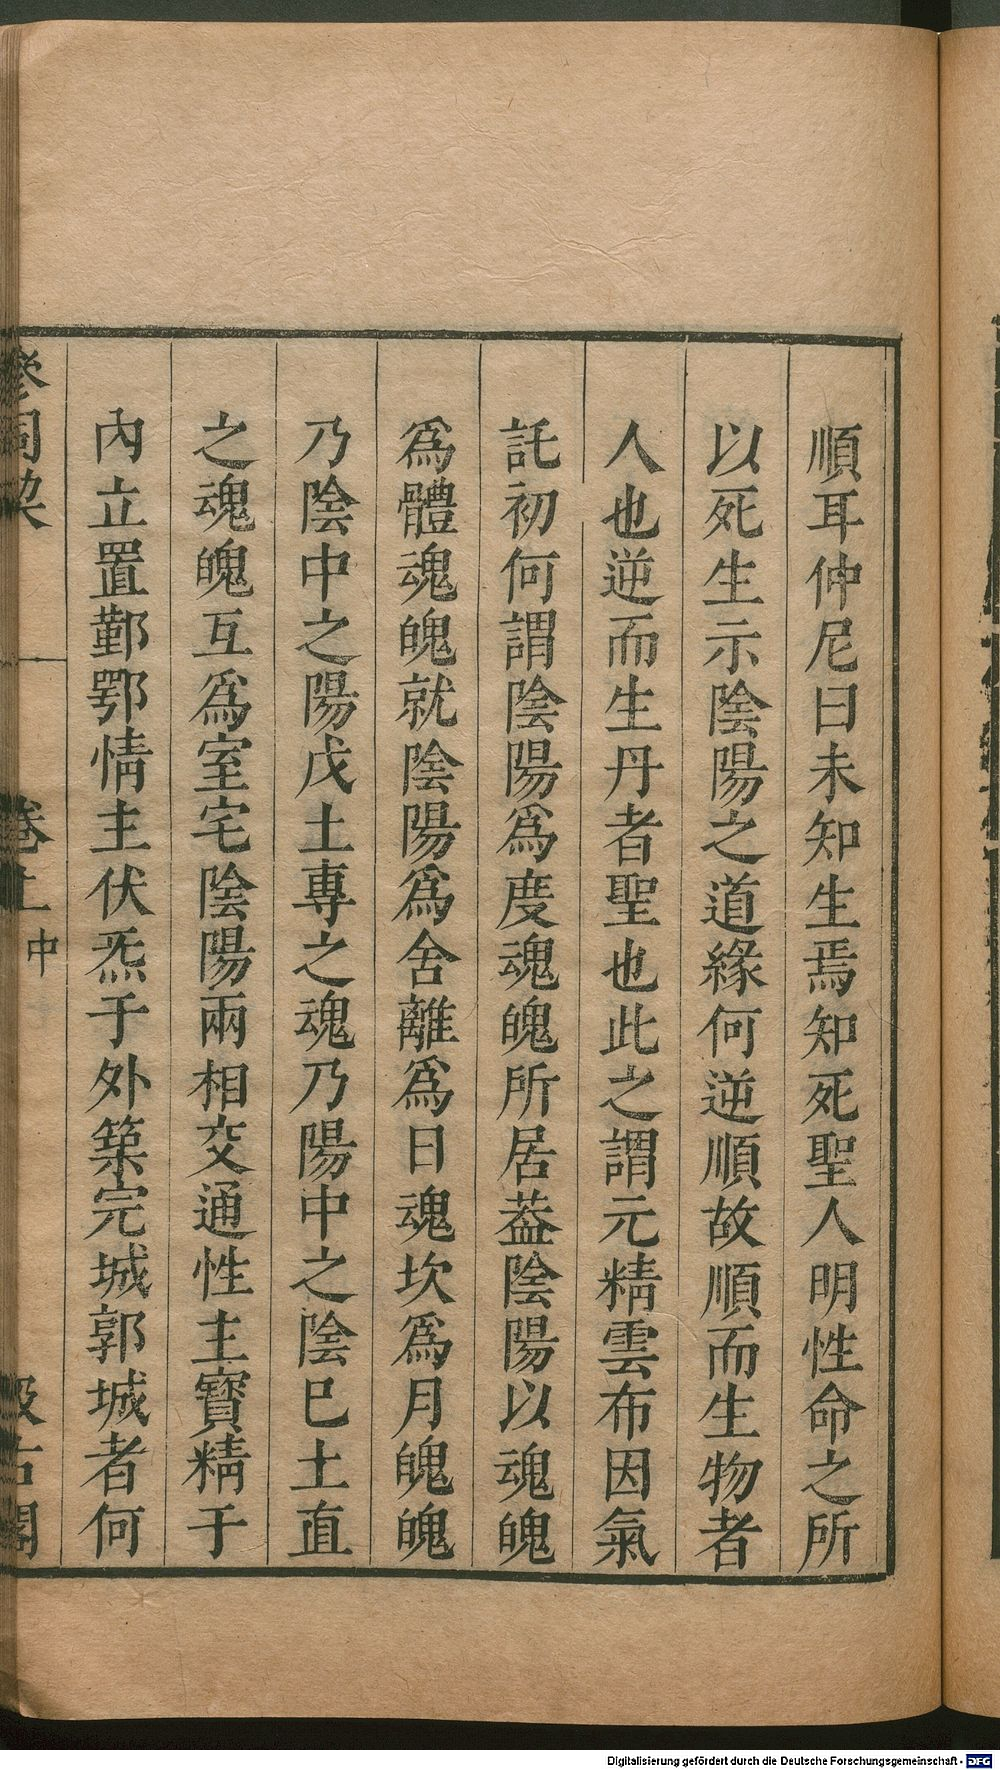 順耳仲尼曰未知生焉知死聖人明性命之所
以死生示陰陽之道緣何逆順故順而生物者
人也逆而生丹者聖也此之謂元精雲布因氣
託初何謂陰陽爲度魂魄所居葢陰陽以魂魄
爲體魂魄就陰陽爲舍離爲日魂坎爲月魄魄
乃陰中之陽戊土專之魂乃陽中之陰巳土直
之魂魄互爲室宅陰陽兩相交通性主寶精于
內立置鄞鄂情主伏炁于外築完城郭城者何
卷上
中
Digitalisierung gefördert durch die Deutsche Forschungsgemeinschaft - DFG